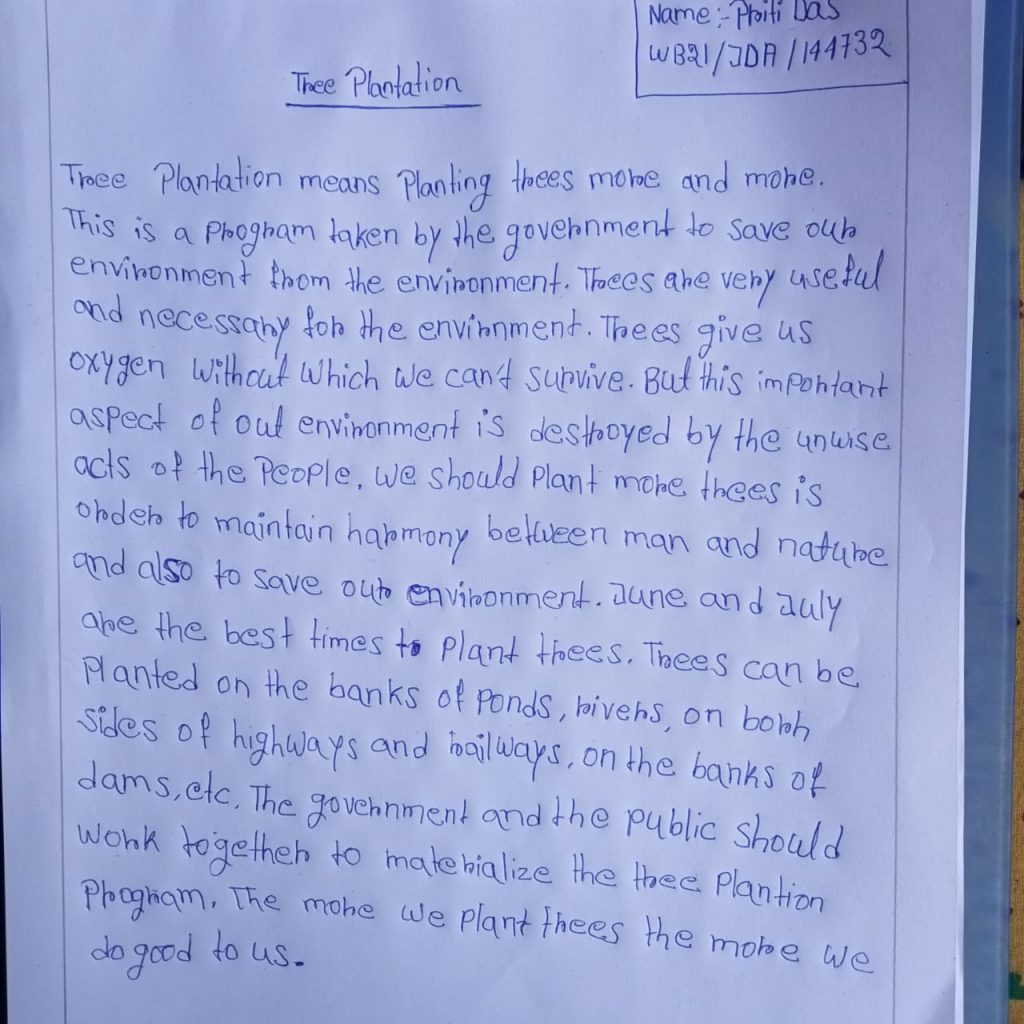 Name :- Priti Das
WB21/JDA/144732
Tree Plantation
Tree Plantation means Planting trees more and more.
This is a program taken by the government to save our
environment from the environment. Trees are very useful
and necessary for the envirnment. Trees give us
oxygen without which we can't survive. But this important
aspect of out environment is destroyed by the unwise
acts of the People. We should Plant more trees is
order to maintain harmony between man and nature
and also to save our environment. June and July
are the best times to Plant trees. Trees can be
Planted on the banks of Ponds, rivers, on borh
sides of highways and railways, on the banks of
dams, etc. The government and the public should
work together to materialize the tree Plantion
Program. The more we plant trees the more we
do good to us.